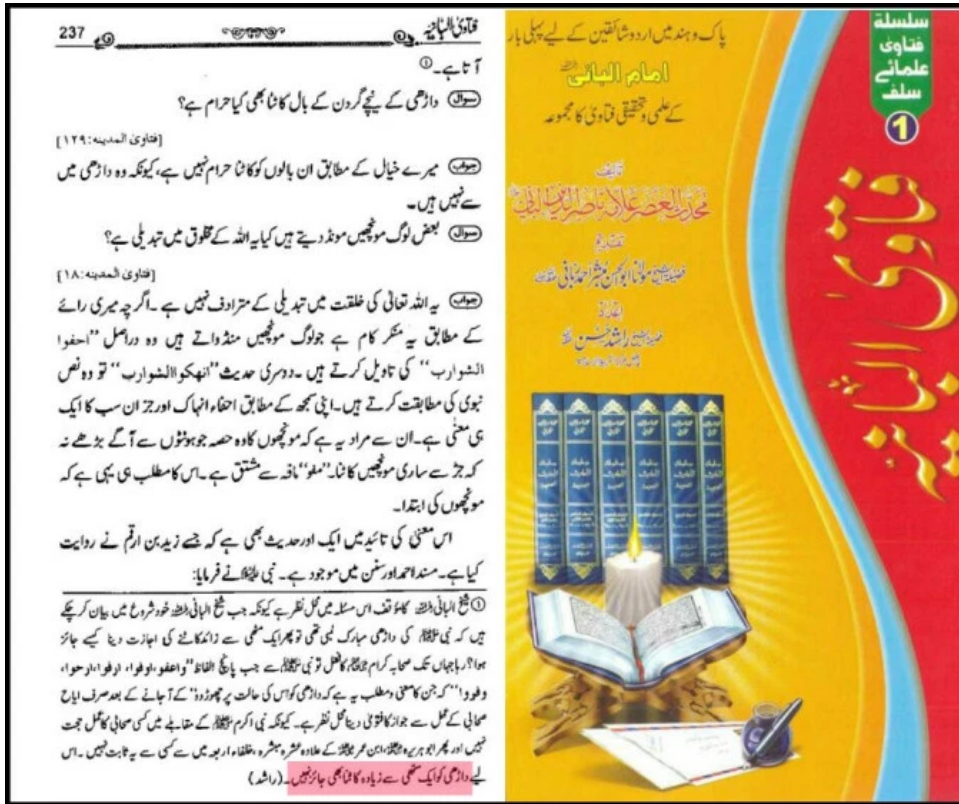 فتاویٰ البانیہ 237
آتا ہے۔①
سوال داڑھی کے نیچے گردن کے بال کاٹنا بھی کیا حرام ہے؟
[فتاویٰ المدینہ:۱۲۹]
جواب میرے خیال کے مطابق ان بالوں کو کاٹنا حرام نہیں ہے، کیونکہ وہ داڑھی میں
سے نہیں ہیں۔
سوال بعض لوگ مونچھیں مونڈ دیتے ہیں کیا یہ اللہ کے مخلوق میں تبدیلی ہے؟
[فتاویٰ المدینہ:۱۸]
جواب یہ اللہ تعالیٰ کی خلقت میں تبدیلی کے مترادف نہیں ہے۔ اگرچہ میری رائے
کے مطابق یہ منکر کام ہے جو لوگ مونچھیں منڈواتے ہیں وہ دراصل ”احفوا
الشوارب“ کی تاویل کرتے ہیں۔ دوسری حدیث ”انهكوا الشوارب“ تو وہ نص
نبوی کی مطابقت کرتے ہیں۔ اپنی سمجھ کے مطابق احفاء انہاک اور جز ان سب کا ایک
ہی معنی ہے۔ ان سے مراد یہ ہے کہ مونچھوں کا وہ حصہ جو ہونٹوں سے آگے بڑھے نہ
کہ جڑ سے ساری مونچھیں کاٹنا۔ ”ملو“ نافہ سے مشتق ہے۔ اس کا مطلب ہی یہی ہے کہ
مونچھوں کی ابتدا۔
اس معنیٰ کی تائید میں ایک اور حدیث بھی ہے کہ جسے زید بن ارقم نے روایت
کیا ہے۔ مسند احمد اور سنن میں موجود ہے۔ نبی ﷺ نے فرمایا:
① شیخ البانی رحمہ اللہ کا موقف اس مسئلہ میں محل نظر ہے کیونکہ جب شیخ البانی رحمہ اللہ خود شروع میں بیان کر چکے
ہیں کہ نبی ﷺ کی داڑھی مبارک لمبی تھی تو پھر ایک مٹھی سے زائد کاٹنے کی اجازت دینا کیسے جائز
ہوا؟ رہا جہاں تک صحابہ کرام کا فعل تو نبی ﷺ سے جب پانچ الفاظ ”واعفو، اوفوا، ارفوا، ارحوا،
وفروا“ کہ جن کا معنی و مطلب یہ ہے کہ داڑھی کو اس کی حالت پر چھوڑ دو“ کے آجانے کے بعد صرف
صحابی کے عمل سے جواز کا فتویٰ دینا محل نظر ہے۔ کیونکہ نبی اکرم ﷺ کے مقابلے میں کسی صحابی کا عمل حجت
نہیں اور پھر ابو ہریرہ، ابن عمر کے علاوہ عشرہ مبشرہ، خلفاء اربعہ میں سے کسی سے یہ ثابت نہیں۔ اس
لیے داڑھی کو ایک مٹھی سے زیادہ کاٹنا بھی جائز نہیں۔ (راشد)
سلسلة
فتاوی
علمائے
سلف
1
پاک و ہند میں اردو شائقین کے لیے پہلی بار
امام البانی
کے علمی و تحقیقی فتاویٰ کا مجموعہ
تالیف
محدث العصر علامہ ناصر الدین البانی
تقدیم
فضیلۃ الشیخ مولانا ابو الحسن مبشر احمد ربانی
فضیلۃ الشیخ راشد حسن
فتاویٰ البانیہ